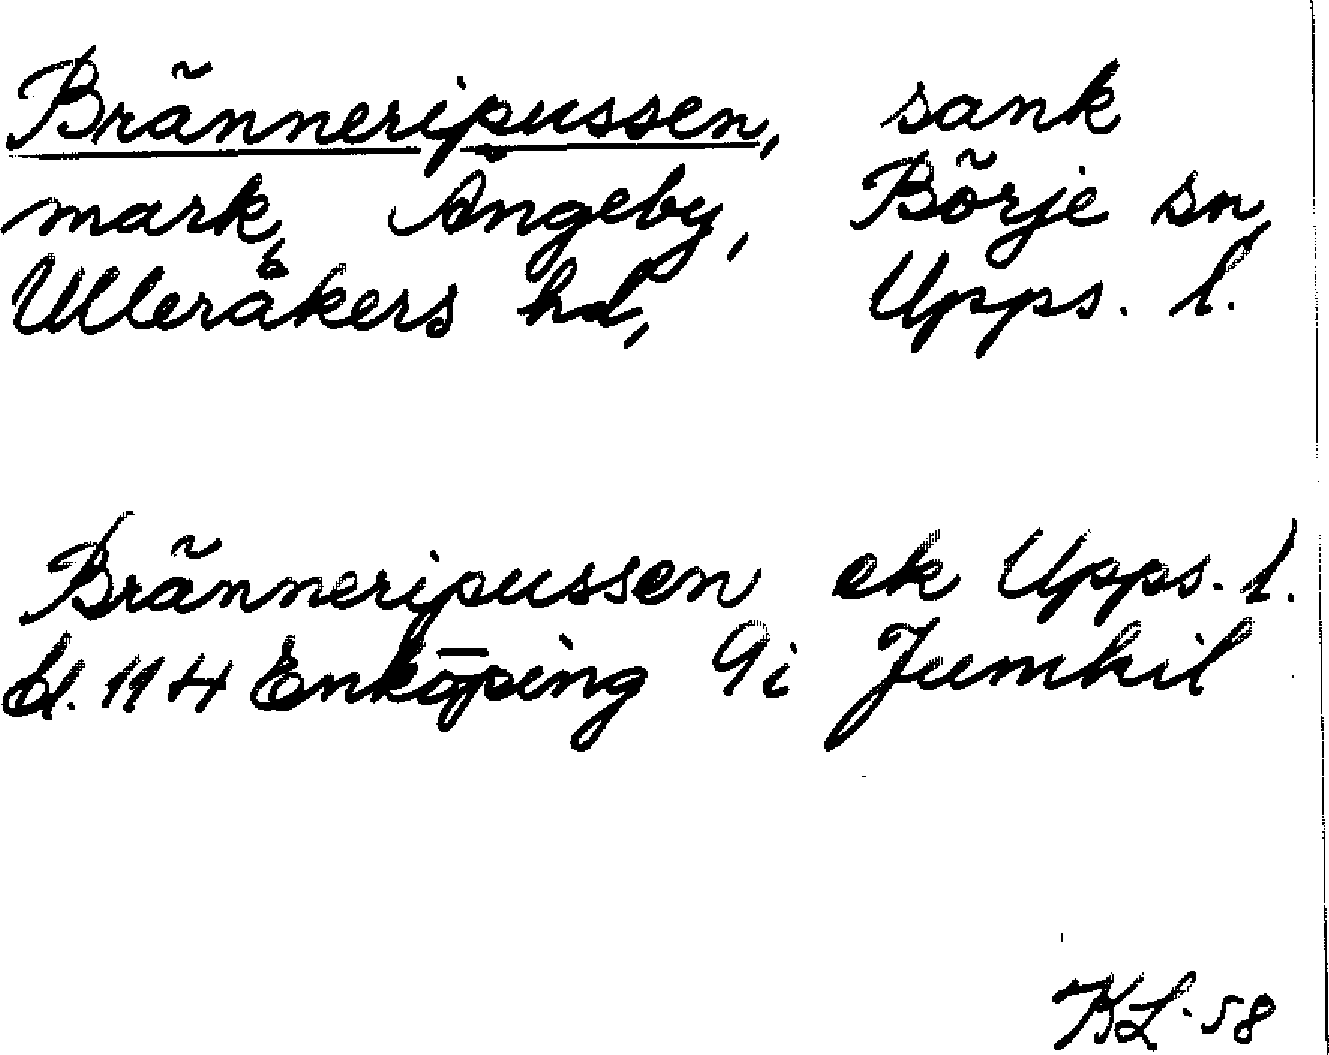 Bränneripussen, sank
mark, Ängeby, Börje sn,
Ulleråkers hd, Upps. l.
Bränneripussen ek Upps. l.
bl. 114 Enköping 9i Jumkil
KL. 58